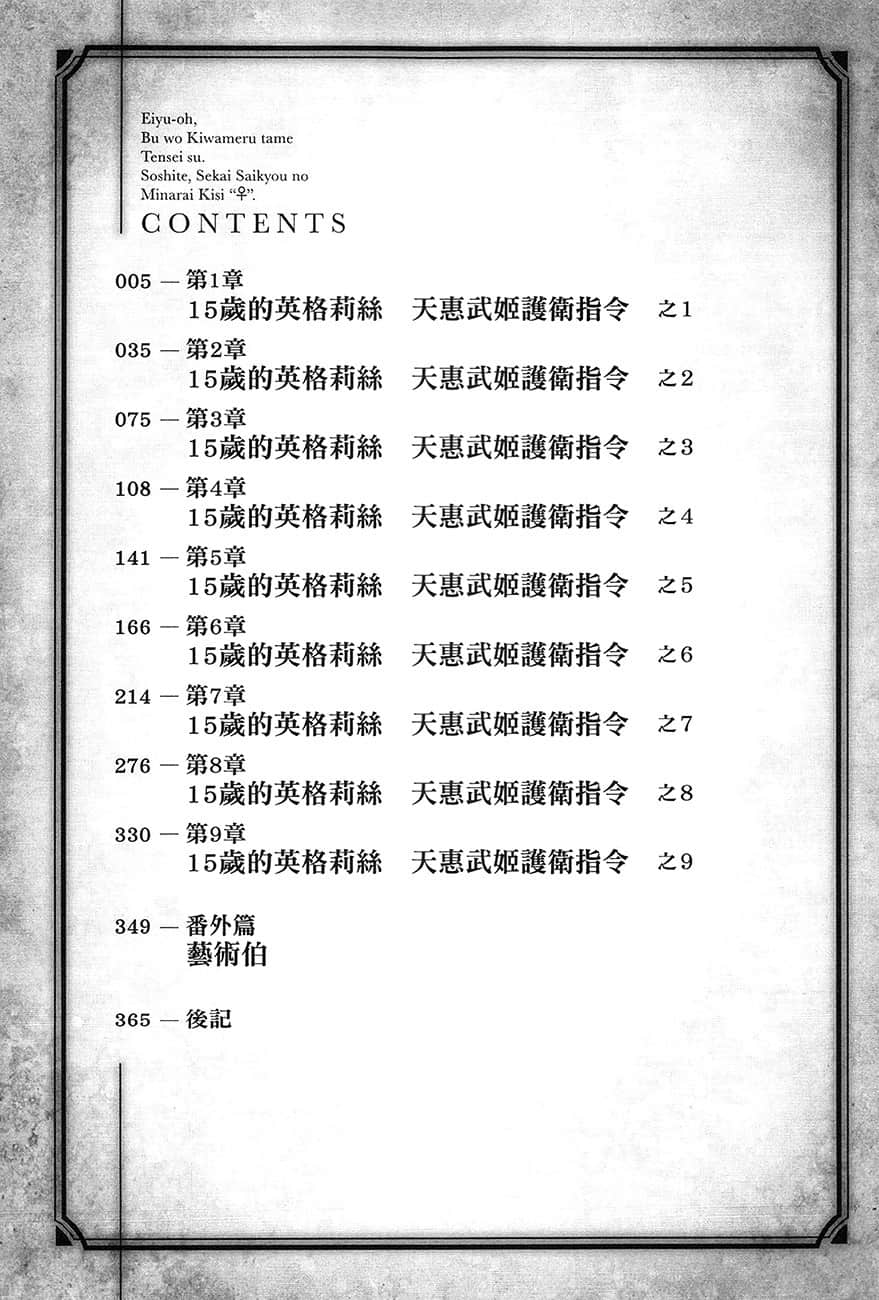 Eiyu-oh,
Bu wo Kiwameru tame
Tensei su.
Soshite, Sekai Saikyou no
Minarai Kisi “♀”.
CONTENTS
005 — 第1章
15歲的英格莉絲　天惠武姬護衛指令　之1
035 — 第2章
15歲的英格莉絲　天惠武姬護衛指令　之2
075 — 第3章
15歲的英格莉絲　天惠武姬護衛指令　之3
108 — 第4章
15歲的英格莉絲　天惠武姬護衛指令　之4
141 — 第5章
15歲的英格莉絲　天惠武姬護衛指令　之5
166 — 第6章
15歲的英格莉絲　天惠武姬護衛指令　之6
214 — 第7章
15歲的英格莉絲　天惠武姬護衛指令　之7
276 — 第8章
15歲的英格莉絲　天惠武姬護衛指令　之8
330 — 第9章
15歲的英格莉絲　天惠武姬護衛指令　之9
349 — 番外篇
藝術伯
365 — 後記